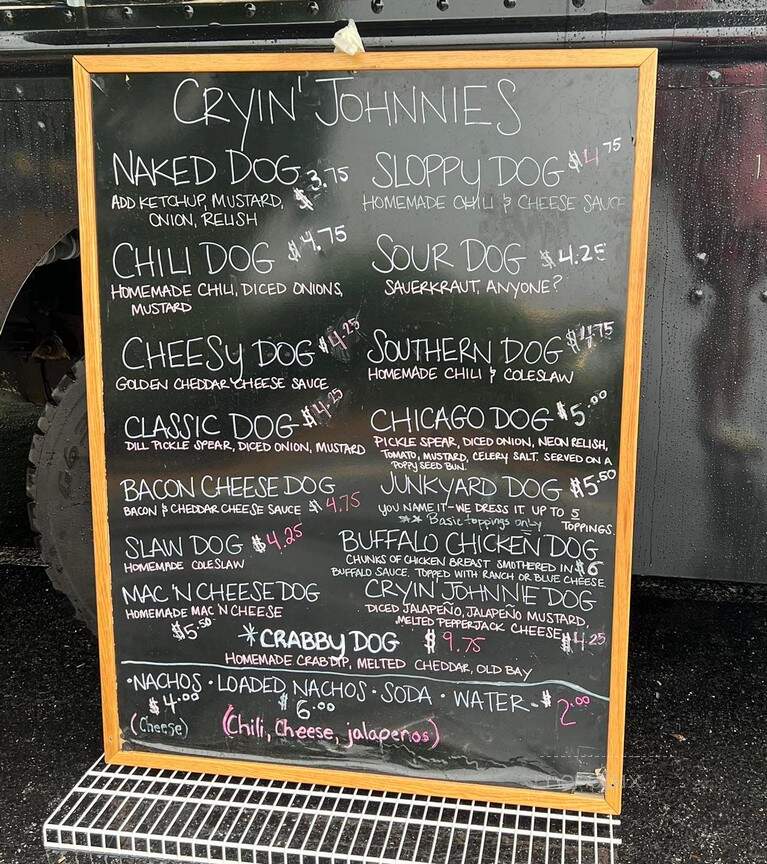 CRYIN' JOHNNIES
NAKED DOG $3.75
ADD KETCHUP, MUSTARD,
ONION, RELISH
SLOPPY DOG $4.75
HOMEMADE CHILI & CHEESE SAUCE
CHILI DOG $4.75
HOMEMADE CHILI, DICED ONIONS,
MUSTARD
SOUR DOG $4.25
SAUERKRAUT, ANYONE?
CHEESY DOG $4.25
GOLDEN CHEDDAR CHEESE SAUCE
SOUTHERN DOG $4.75
HOMEMADE CHILI & COLESLAW
CLASSIC DOG $4.25
DILL PICKLE SPEAR, DICED ONION, MUSTARD
CHICAGO DOG $5.00
PICKLE SPEAR, DICED ONION, NEON RELISH,
TOMATO, MUSTARD, CELERY SALT. SERVED ON A
POPPY SEED BUN.
BACON CHEESE DOG
BACON & CHEDDAR CHEESE SAUCE $4.75
JUNKYARD DOG $5.50
YOU NAME IT-WE DRESS IT UP TO 5
TOPPINGS.
** Basic toppings only
SLAW DOG $4.25
HOMEMADE COLESLAW
BUFFALO CHICKEN DOG
CHUNKS OF CHICKEN BREAST SMOTHERED IN $6
BUFFALO SAUCE. TOPPED WITH RANCH OR BLUE CHEESE.
MAC 'N CHEESE DOG
HOMEMADE MAC 'N CHEESE
$5.50
CRYIN' JOHNNIE DOG
DICED JALAPEÑO, JALAPEÑO MUSTARD,
MELTED PEPPERJACK CHEESE $4.25
*CRABBY DOG $9.75
HOMEMADE CRAB DIP, MELTED CHEDDAR, OLD BAY
•NACHOS • LOADED NACHOS • SODA • WATER - $2.00
$4.00 $6.00
(Cheese) (Chili, Cheese, jalapenos)